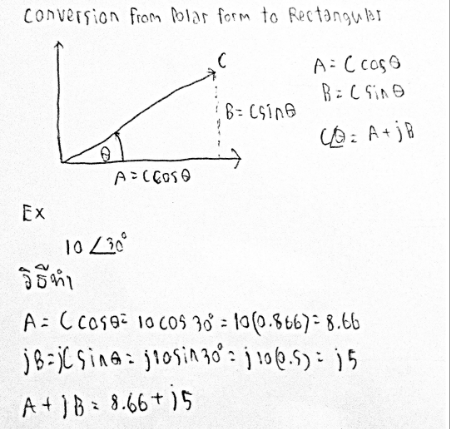 Conversion from Polar form to Rectangular
C
A = C cosθ
B = C sinθ
B = C sinθ
C∠θ = A + jB
θ
A = C cosθ
Ex
10 ∠30°
วิธีทำ
A = C cosθ = 10 cos 30° = 10(0.866) = 8.66
jB = jC sinθ = j10 sin 30° = j10(0.5) = j5
A + jB = 8.66 + j5